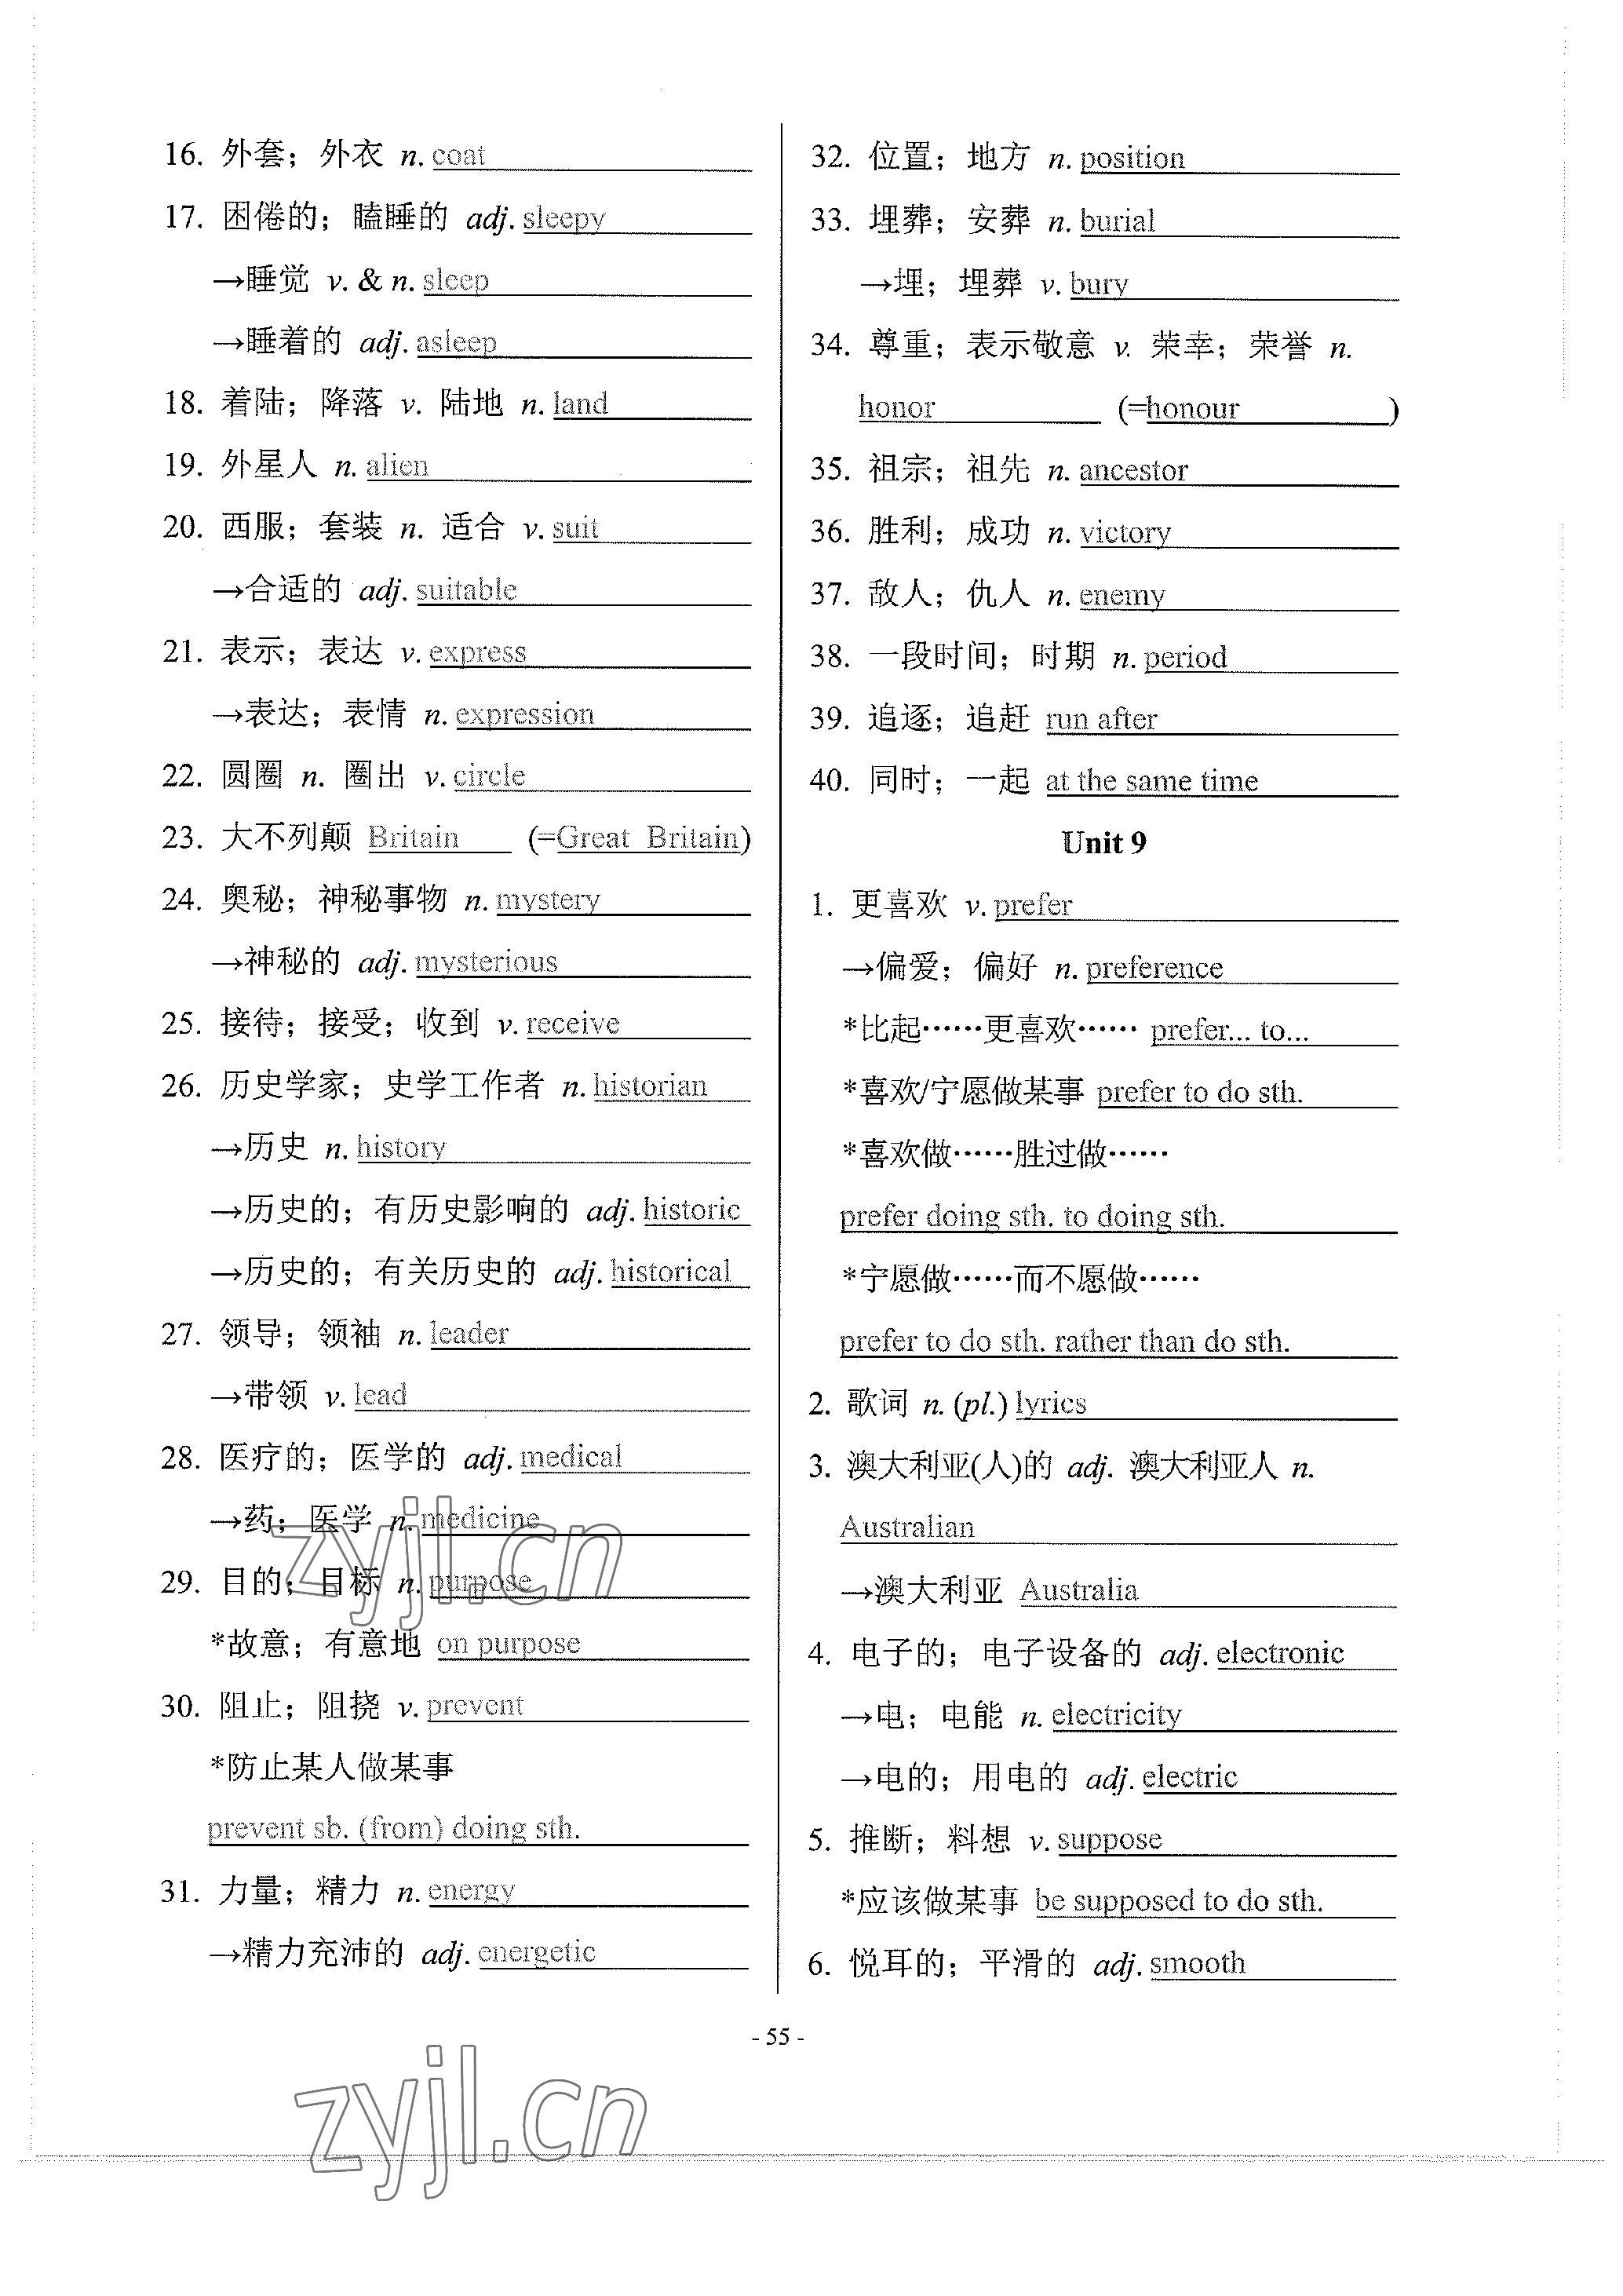 16. 外套；外衣 n. coat
17. 困倦的；瞌睡的 adj. sleepy
→睡觉 v. & n. sleep
→睡着的 adj. asleep
18. 着陆；降落 v. 陆地 n. land
19. 外星人 n. alien
20. 西服；套装 n. 适合 v. suit
→合适的 adj. suitable
21. 表示；表达 v. express
→表达；表情 n. expression
22. 圆圈 n. 圈出 v. circle
23. 大不列颠 Britain (=Great Britain)
24. 奥秘；神秘事物 n. mystery
→神秘的 adj. mysterious
25. 接待；接受；收到 v. receive
26. 历史学家；史学工作者 n. historian
→历史 n. history
→历史的；有历史影响的 adj. historic
→历史的；有关历史的 adj. historical
27. 领导；领袖 n. leader
→带领 v. lead
28. 医疗的；医学的 adj. medical
→药；医学 n. medicine
29. 目的；目标 n. purpose
*故意；有意地 on purpose
30. 阻止；阻挠 v. prevent
*防止某人做某事
prevent sb. (from) doing sth.
31. 力量；精力 n. energy
→精力充沛的 adj. energetic
32. 位置；地方 n. position
33. 埋葬；安葬 n. burial
→埋；埋葬 v. bury
34. 尊重；表示敬意 v. 荣幸；荣誉 n.
honor (=honour)
35. 祖宗；祖先 n. ancestor
36. 胜利；成功 n. victory
37. 敌人；仇人 n. enemy
38. 一段时间；时期 n. period
39. 追逐；追赶 run after
40. 同时；一起 at the same time
Unit 9
1. 更喜欢 v. prefer
→偏爱；偏好 n. preference
*比起……更喜欢…… prefer... to...
*喜欢/宁愿做某事 prefer to do sth.
*喜欢做……胜过做……
prefer doing sth. to doing sth.
*宁愿做……而不愿做……
prefer to do sth. rather than do sth.
2. 歌词 n. (pl.) lyrics
3. 澳大利亚(人)的 adj. 澳大利亚人 n.
Australian
→澳大利亚 Australia
4. 电子的；电子设备的 adj. electronic
→电；电能 n. electricity
→电的；用电的 adj. electric
5. 推断；料想 v. suppose
*应该做某事 be supposed to do sth.
6. 悦耳的；平滑的 adj. smooth
- 55 -
zyjl.cn
zyjl.cn